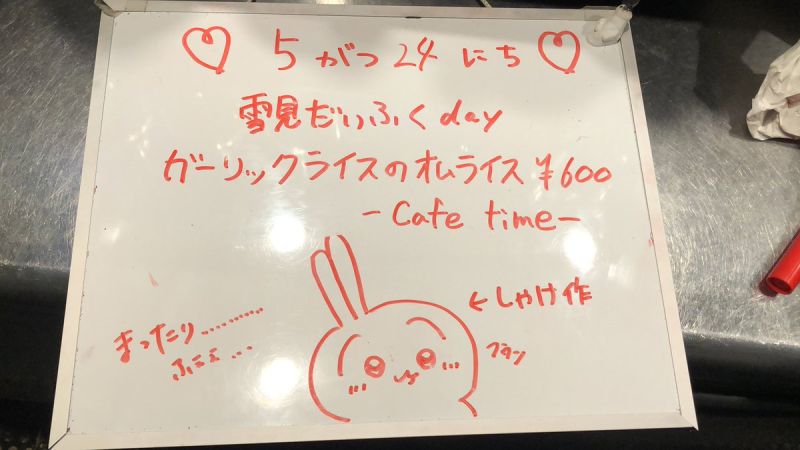 ♡ 5がつ24にち ♡
雪見だいふくday
ガーリックライスのオムライス ¥600
-Cafe time-
←しゃけ作
まったり………
ふぇぇ…